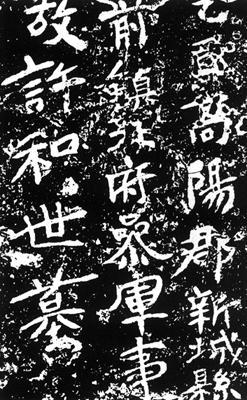 國高陽郡新城縣
前鎮北府參軍事
故許和世墓